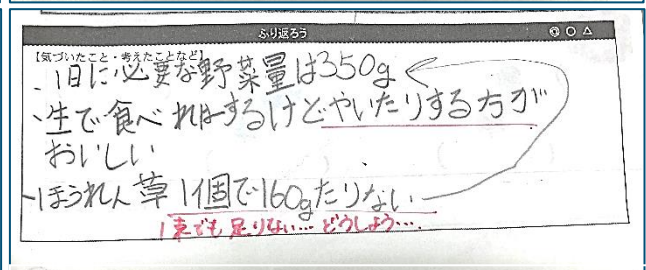 ふり返ろう ◎ ○ △
【気づいたこと・考えたことなど】
、1日に必要な野菜量は350g
、生で食べれはするけどやいたりする方が
おいしい
、ほうれん草1個で160gたりない
1束でも足りない…どうしよう…。